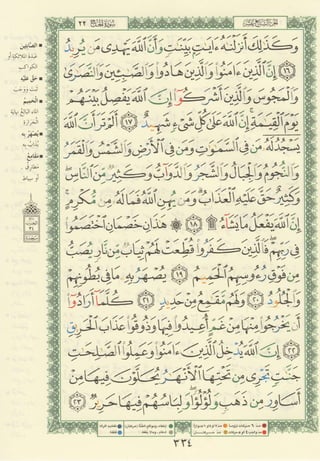 سورة الحج ٢٢
وَكَذَٰلِكَ أَنزَلْنَٰهُ ءَايَٰتٍۭ بَيِّنَٰتٍ وَأَنَّ ٱللَّهَ يَهْدِى مَن يُرِيدُ
١٦ إِنَّ ٱلَّذِينَ ءَامَنُوا۟ وَٱلَّذِينَ هَادُوا۟ وَٱلصَّٰبِـِٔينَ وَٱلنَّصَٰرَىٰ
وَٱلْمَجُوسَ وَٱلَّذِينَ أَشْرَكُوٓا۟ إِنَّ ٱللَّهَ يَفْصِلُ بَيْنَهُمْ
يَوْمَ ٱلْقِيَٰمَةِ إِنَّ ٱللَّهَ عَلَىٰ كُلِّ شَىْءٍ شَهِيدٌ ١٧ أَلَمْ تَرَ أَنَّ ٱللَّهَ
يَسْجُدُ لَهُۥ مَن فِى ٱلسَّمَٰوَٰتِ وَمَن فِى ٱلْأَرْضِ وَٱلشَّمْسُ وَٱلْقَمَرُ
وَٱلنُّجُومُ وَٱلْجِبَالُ وَٱلشَّجَرُ وَٱلدَّوَآبُّ وَكَثِيرٌ مِّنَ ٱلنَّاسِ
وَكَثِيرٌ حَقَّ عَلَيْهِ ٱلْعَذَابُ وَمَن يُهِنِ ٱللَّهُ فَمَا لَهُۥ مِن مُّكْرِمٍ
إِنَّ ٱللَّهَ يَفْعَلُ مَا يَشَآءُ ۩ ١٨ هَٰذَانِ خَصْمَانِ ٱخْتَصَمُوا۟
فِى رَبِّهِمْ فَٱلَّذِينَ كَفَرُوا۟ قُطِّعَتْ لَهُمْ ثِيَابٌ مِّن نَّارٍ يُصَبُّ
مِن فَوْقِ رُءُوسِهِمُ ٱلْحَمِيمُ ١٩ يُصْهَرُ بِهِۦ مَا فِى بُطُونِهِمْ
وَٱلْجُلُودُ ٢٠ وَلَهُم مَّقَٰمِعُ مِنْ حَدِيدٍ ٢١ كُلَّمَآ أَرَادُوٓا۟
أَن يَخْرُجُوا۟ مِنْهَا مِنْ غَمٍّ أُعِيدُوا۟ فِيهَا وَذُوقُوا۟ عَذَابَ ٱلْحَرِيقِ
٢٢ إِنَّ ٱللَّهَ يُدْخِلُ ٱلَّذِينَ ءَامَنُوا۟ وَعَمِلُوا۟ ٱلصَّٰلِحَٰتِ
جَنَّٰتٍ تَجْرِى مِن تَحْتِهَا ٱلْأَنْهَٰرُ يُحَلَّوْنَ فِيهَا مِنْ
أَسَاوِرَ مِن ذَهَبٍ وَلُؤْلُؤًا وَلِبَاسُهُمْ فِيهَا حَرِيرٌ ٢٣
الصابئين
حق عليه
الحميم
يصهر به
مقامع
٣٣٤